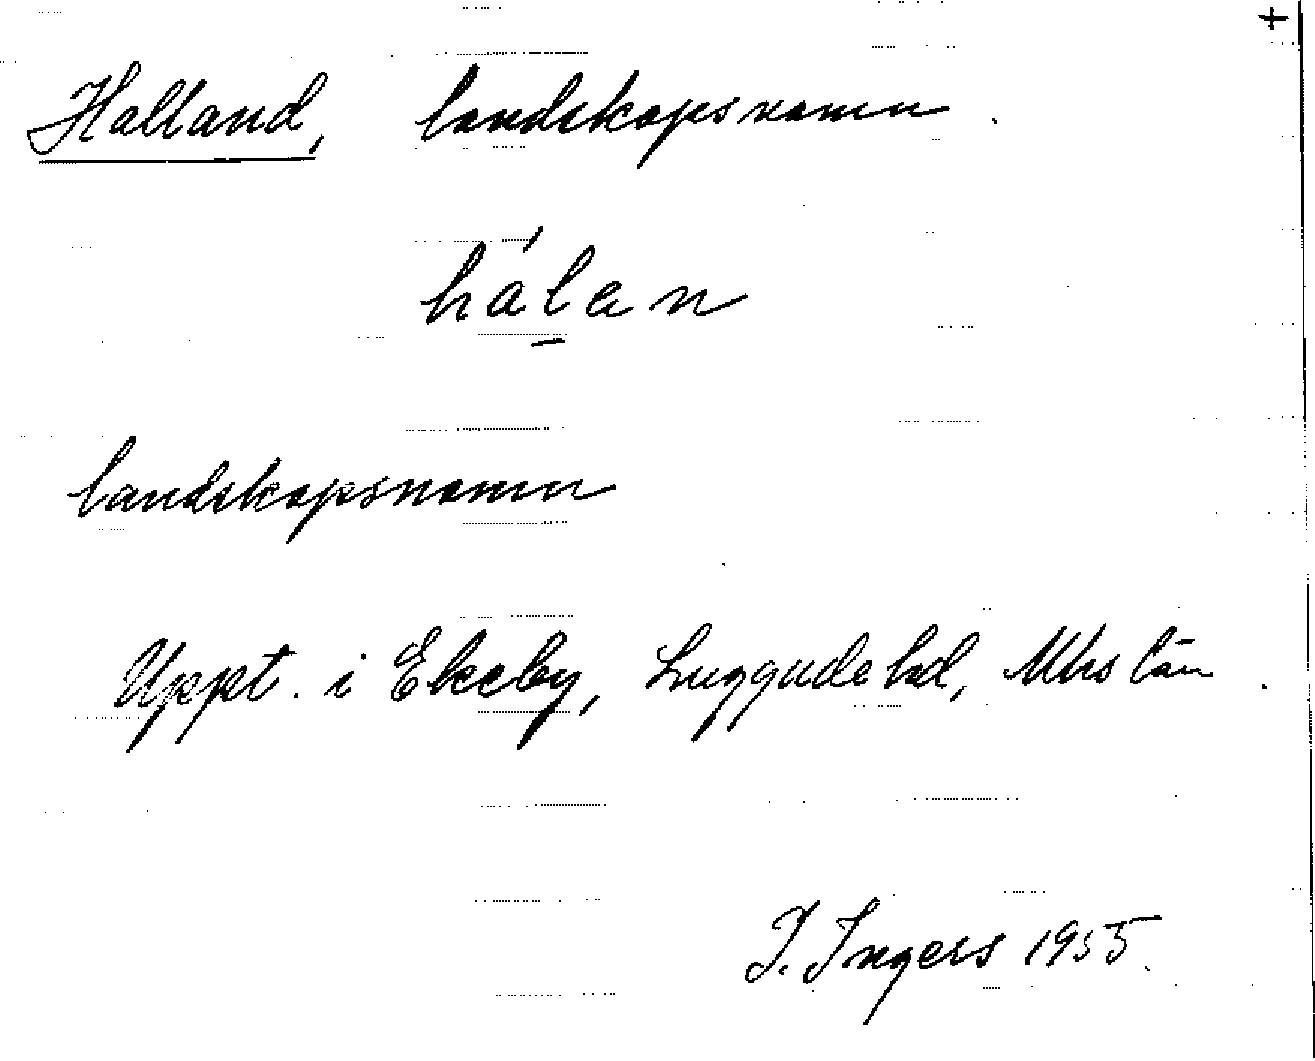 +
Halland, landskapsnamn.
hálan
landskapsnamn
Uppt. i Ekeby, Luggude hd, Mhs län.
I. Ingers 1955.